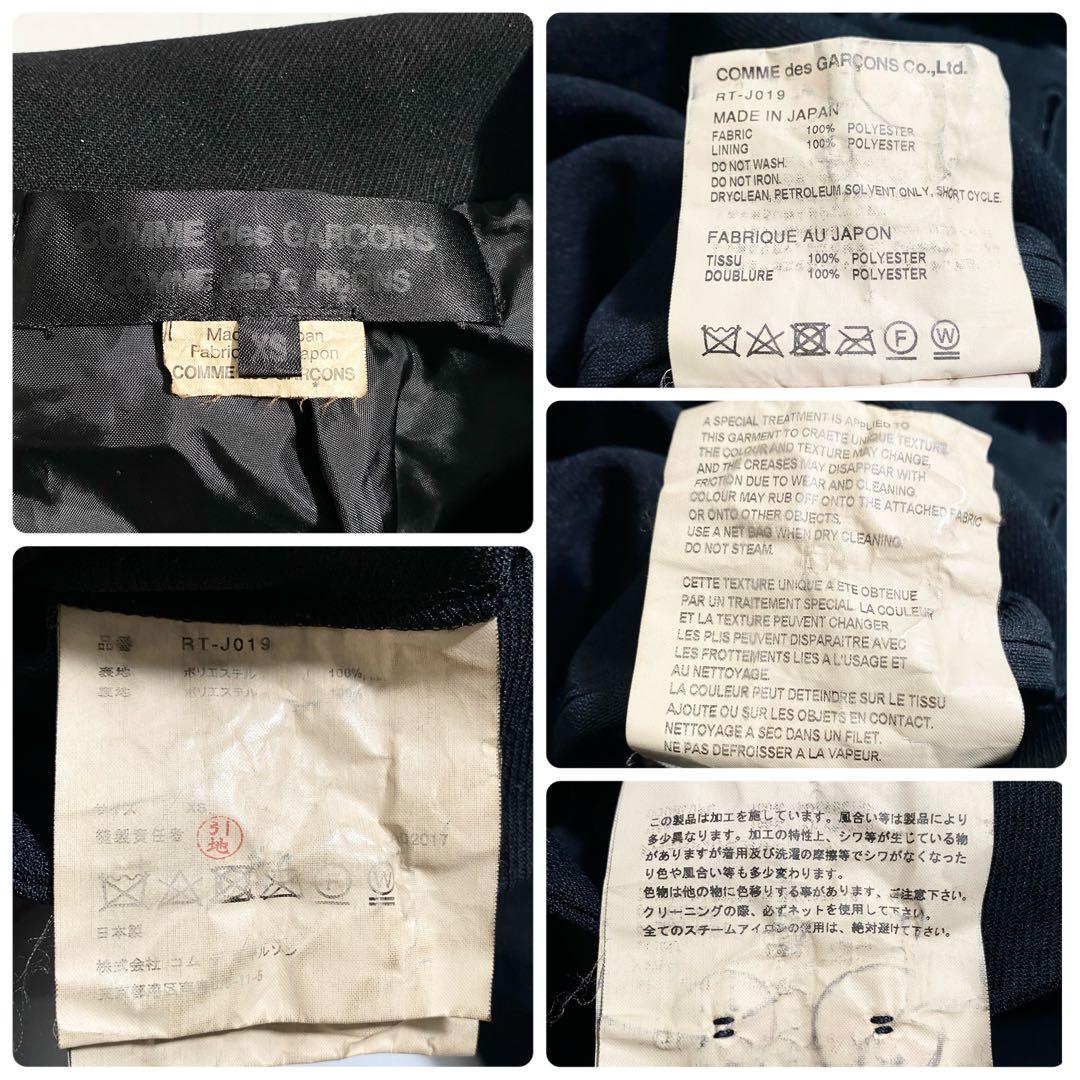 COMME des GARCONS
COMME des G RÇONS
XS
COMME des GARÇONS Co.,Ltd.
RT-J019
MADE IN JAPAN
FABRIC 100% POLYESTER
LINING 100% POLYESTER
DO NOT WASH.
DO NOT IRON.
DRYCLEAN, PETROLEUM SOLVENT ONLY, SHORT CYCLE.
FABRIQUE AU JAPON
TISSU 100% POLYESTER
DOUBLURE 100% POLYESTER
F W
A SPECIAL TREATMENT IS APPLIED TO
THIS GARMENT TO CRAETE UNIQUE TEXTURE.
THE COLOUR AND TEXTURE MAY CHANGE,
AND THE CREASES MAY DISAPPEAR WITH
FRICTION DUE TO WEAR AND CLEANING.
COLOUR MAY RUB OFF ONTO THE ATTACHED FABRIC
OR ONTO OTHER OBJECTS.
USE A NET BAG WHEN DRY CLEANING.
DO NOT STEAM.
CETTE TEXTURE UNIQUE A ETE OBTENUE
PAR UN TRAITEMENT SPECIAL. LA COULEUR
ET LA TEXTURE PEUVENT CHANGER,
LES PLIS PEUVENT DISPARAITRE AVEC
LES FROTTEMENTS LIES A L'USAGE ET
AU NETTOYAGE.
LA COULEUR PEUT DETEINDRE SUR LE TISSU
AJOUTE OU SUR LES OBJETS EN CONTACT.
NETTOYAGE A SEC DANS UN FILET.
NE PAS DEFROISSER A LA VAPEUR.
品番 RT-J019
表地 ポリエステル 100%
裏地 ポリエステル 100%
サイズ XS
縫製責任者 引地 2017
F W
日本製
株式会社 コム ルソン
東京都港区南 -11-5
この製品は加工を施しています。風合い等は製品により
多少異なります。加工の特性上、シワ等が生じている物
がありますが着用及び洗濯の摩擦等でシワがなくなった
り色や風合い等も多少変わります。
色物は他の物に色移りする事があります、ご注意下さい。
クリーニングの際、必ずネットを使用して下さい。
全てのスチームアイロンの使用は、絶対避けて下さい。